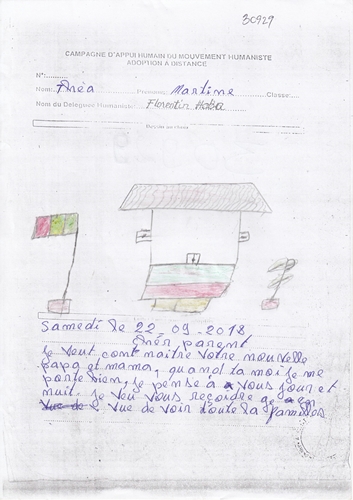 30929
CAMPAGNE D'APPUI HUMAIN DU MOUVEMENT HUMANISTE
ADOPTION A DISTANCE
N°:
Nom: Anéa Prénoms: Martine Classe:
Nom du Délégués Humaniste: Florentin
Samedi le 22-09-2018
parent
je veut connaitre votre nouvelle
papa et mama, quand ta moi je me
porte bien, je pense à vous jour et
nuit. je veu vous
vue de voir toute la familles